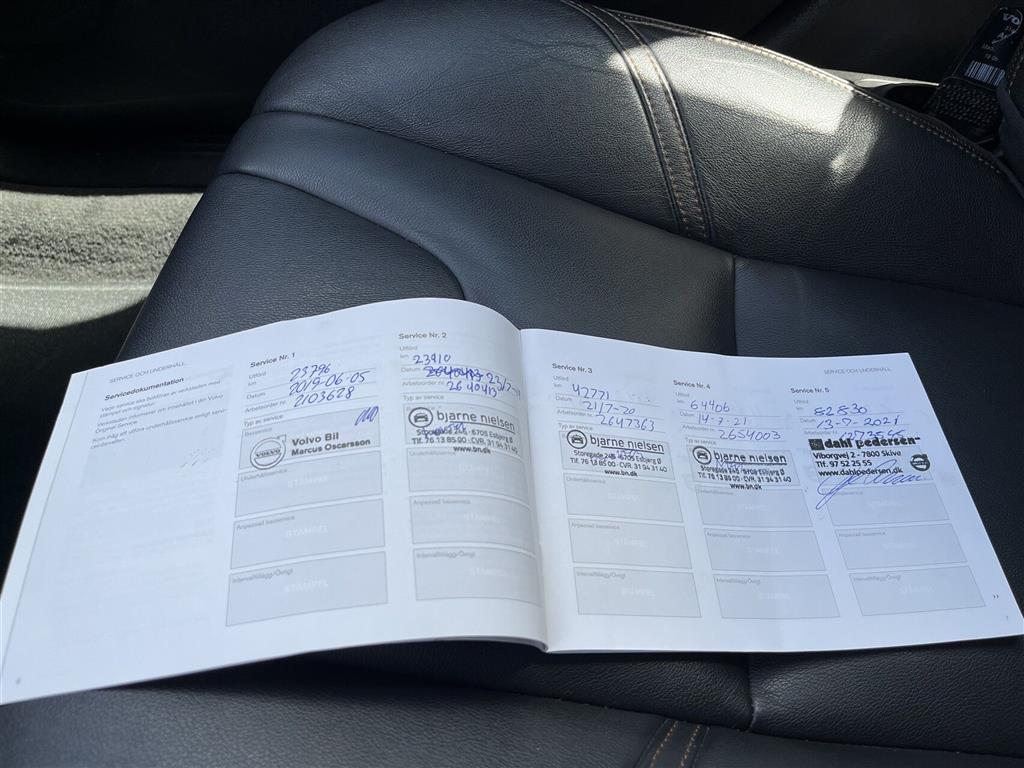 SERVICE OCH UNDERHÅLL
Servicedokumentation
Varje service ska bokföras av verkstaden med
stämpel och signatur.
Verkstaden informerar om innehållet i den Volvo
Original Service.
Kom ihåg att utföra underhållsservice enligt service-
Service Nr. 1
Utförd
km 23796
Datum 2019-06-05
Arbetsorder nr 2103628
Typ av service
Basservice
VOLVO
Volvo Bil
Marcus Oscarsson
Underhållsservice
STÄMPEL
Anpassad basservice
STÄMPEL
Intervalltillägg/Övrigt
STÄMPEL
Service Nr. 2
Utförd
km 23910
Datum
Arbetsorder nr 2640413
Typ av service
bjarne nielsen
Storegade 245 · 6705 Esbjerg Ø
Tlf. 76 13 85 00 · CVR. 31 94 31 40
www.bn.dk
Underhållsservice
Anpassad basservice
STÄMPEL
Intervalltillägg/Övrigt
STÄMPEL
SERVICE OCH UNDERHÅLL
Service Nr. 3
Utförd
km 42771
Datum 21/7-20
Arbetsorder nr 2647363
Typ av service
bjarne nielsen
Storegade 245 · 6705 Esbjerg Ø
Tlf. 76 13 85 00 · CVR. 31 94 31 40
www.bn.dk
Underhållsservice
STÄMPEL
Anpassad basservice
STÄMPEL
Intervalltillägg/Övrigt
STÄMPEL
Service Nr. 4
Utförd
km 64406
Datum 14-7-21
Arbetsorder nr 2654003
Typ av service
bjarne nielsen
Storegade 245 · 6705 Esbjerg Ø
Tlf. 76 13 85 00 · CVR. 31 94 31 40
www.bn.dk
STÄMPEL
Anpassad basservice
STÄMPEL
Intervalltillägg/Övrigt
STÄMPEL
Service Nr. 5
Utförd
km 82830
Datum 13-7-2021
Arbetsorder nr
dahl pedersen
Viborgvej 2 - 7800 Skive
Tlf. 97 52 25 55
www.dahlpedersen.dk
Underhållsservice
STÄMPEL
Anpassad basservice
STÄMPEL
Intervalltillägg/Övrigt
STÄMPEL